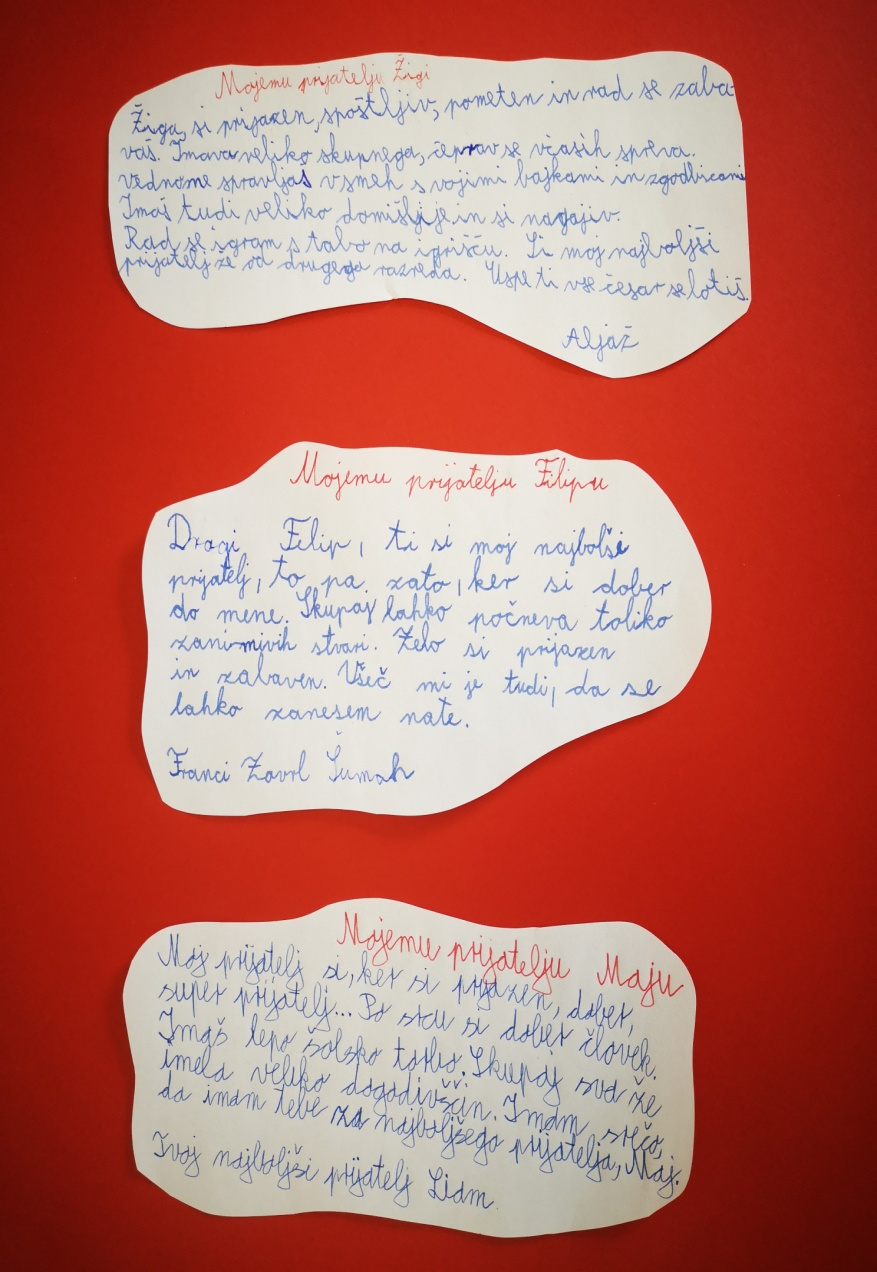 Mojemu prijatelju Žigi
Žiga, si prijazen, spoštljiv, pameten in rad se zaba-
vaš. Imava veliko skupnega, čeprav se včasih spreva.
Vedno me spravljaš v smeh s svojimi bajkami in zgodbicami
Imaš tudi veliko domišljije in si nagajiv.
Rad se igram s tabo na igrišču. Si moj najboljši
prijatelj že od drugega razreda. Uspe ti vse česar se lotiš.
Aljaž
Mojemu prijatelju Filipu
Dragi Filip, ti si moj najbolši
prijatelj, to pa zato, ker si dober
do mene. Skupaj lahko počneva toliko
zanimivih stvari. Zelo si prijazen
in zabaven. Všeč mi je tudi, da se
lahko zanesem nate.
Franci Zavrl Šumah
Mojemu prijatelju Maju
Moj prijatelj si, ker si prijazen, dober,
super prijatelj... Po srcu si dober človek.
Imaš lepo šolsko torbo. Skupaj sva že
imela veliko dogodivščin. Imam srečo,
da imam tebe za najboljšega prijatelja, Maj.
Tvoj najboljši prijatelj Liam